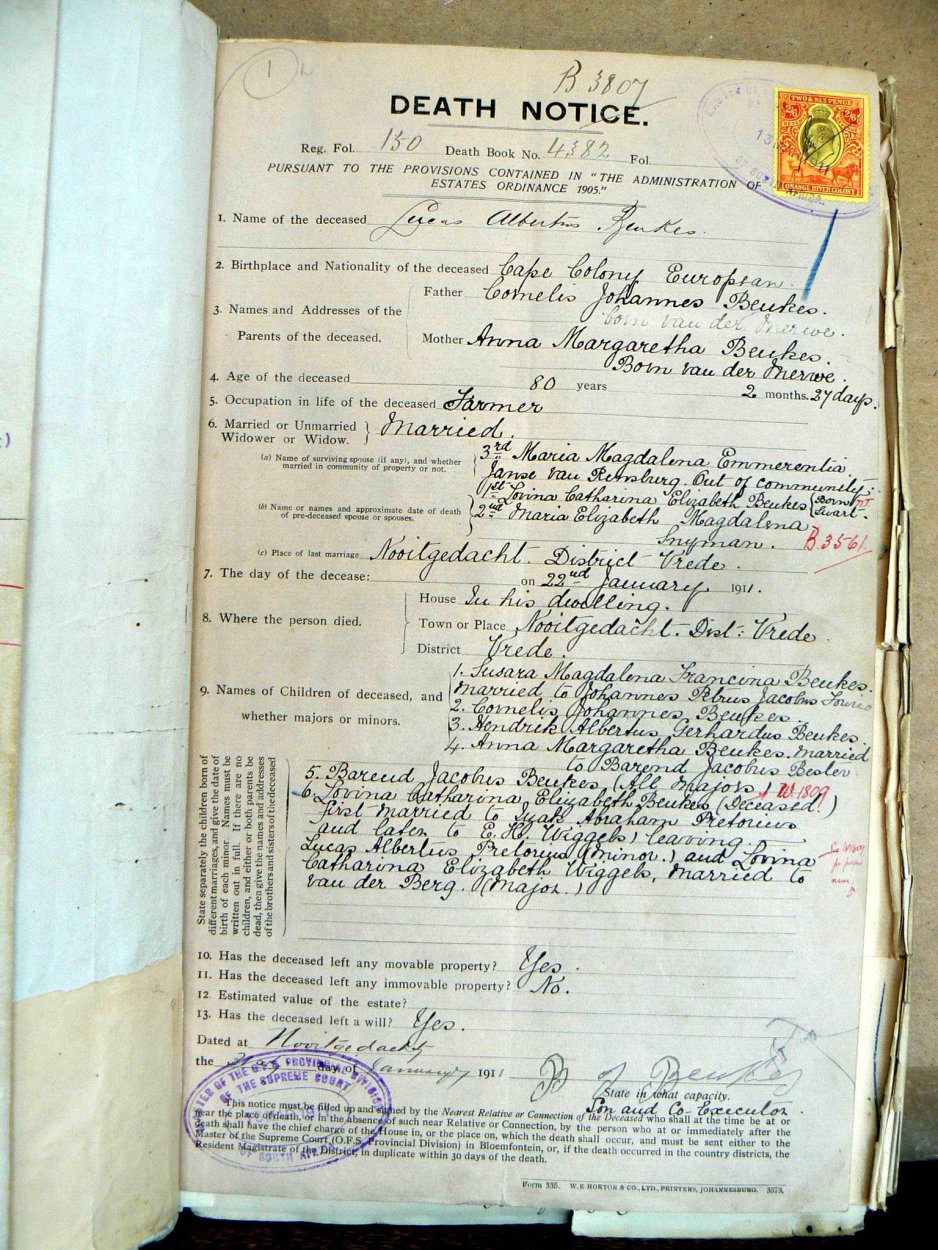 1
B 3807
DEATH NOTICE.
TWO & SIX PENCE
2/6 2/6
ORANGE RIVER COLONY
Reg. Fol. 150 Death Book No. 4382 Fol.
PURSUANT TO THE PROVISIONS CONTAINED IN "THE ADMINISTRATION OF
ESTATES ORDINANCE 1905."
1. Name of the deceased Lucas Albertus Beukes.
2. Birthplace and Nationality of the deceased Cape Colony European.
3. Names and Addresses of the Parents of the deceased.
Father Cornelis Johannes Beukes.
born van der Merwe.
Mother Anna Margaretha Beukes.
Born van der Merwe.
4. Age of the deceased 80 years 2 months. 27 days.
5. Occupation in life of the deceased Farmer
6. Married or Unmarried Widower or Widow. Married.
(a) Name of surviving spouse (if any), and whether
married in community of property or not.
3rd Maria Magdalena Emmerentia
Janse van Rensburg. Out of community.
(b) Name or names and approximate date of death
of pre-deceased spouse or spouses.
1st Lovina Catharina Elizabeth Beukes (Born Swart.
2nd Maria Elizabeth Magdalena
Snyman. B.3561
(c) Place of last marriage Nooitgedacht. District Vrede.
7. The day of the decease: on 22nd January 1911.
8. Where the person died.
House In his dwelling.
Town or Place Nooitgedacht. Dist: Vrede.
District Vrede.
9. Names of Children of deceased, and
whether majors or minors.
1. Susara Magdalena Francina Beukes.
married to Johannes Petrus Jacobus Fourie
2. Cornelis Johannes Beukes.
3. Hendrik Albertus Gerhardus Beukes.
4. Anna Margaretha Beukes, married
to Barend Jacobus Bester.
State separately the children born of
different marriages, and give the date of
birth of each minor. Names must be
written out in full. If there are no
children, and either or both parents be
dead, then give the names and addresses
of the brothers and sisters of the deceased
5. Barend Jacobus Beukes (All majors) W.1809
6. Lovina Catharina Elizabeth Beukes (Deceased.)
first married to Izak Abraham Pretorius
and later to E. H. Wiggels) leaving
Lucas Albertus Pretorius (Minor.) and Lovina
Catharina Elizabeth Wiggels, married to
van der Berg. (Major.)
10. Has the deceased left any movable property? Yes.
11. Has the deceased left any immovable property? No.
12. Estimated value of the estate?
13. Has the deceased left a will? Yes.
Dated at Nooitgedacht
the day of January 1911
Beukes
State in what capacity.
Son and Co-Executor.
OF THE O.F.S. PROVINCIAL DIVISION
OF THE SUPREME COURT
OF SOUTH AFRICA
This notice must be filled up and signed by the Nearest Relative or Connection of the Deceased who shall at the time be at or
near the place of death, or in the absence of such near Relative or Connection, by the person who at or immediately after the
death shall have the chief charge of the House in, or the place on, which the death shall occur, and must be sent either to the
Master of the Supreme Court (O.F.S. Provincial Division) in Bloemfontein, or, if the death occurred in the country districts, the
Resident Magistrate of the District, in duplicate within 30 days of the death.
Form 335. W. E. HORTOR & CO., LTD., PRINTERS, JOHANNESBURG. 3573.